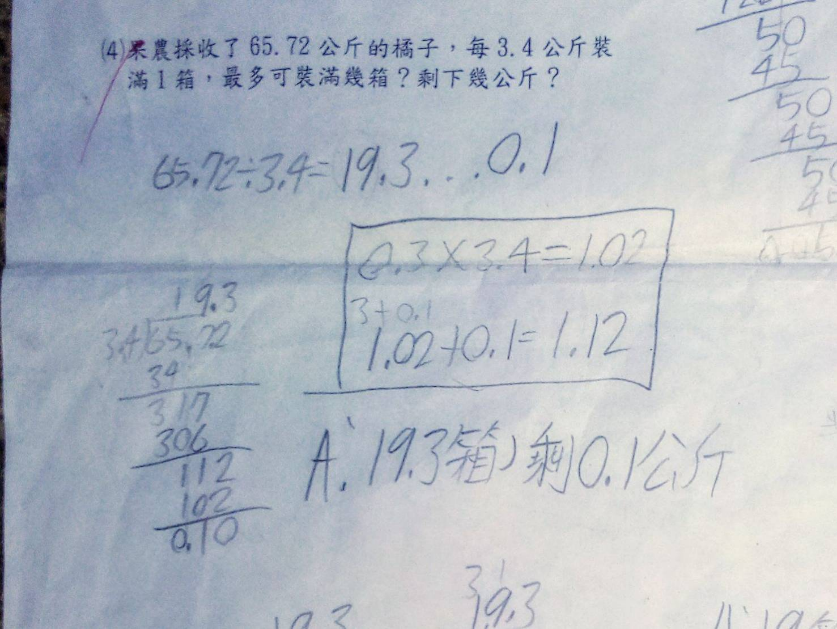 (4)果農採收了 65.72 公斤的橘子，每 3.4 公斤裝
滿 1 箱，最多可裝滿幾箱？剩下幾公斤？
65.72÷3.4=19.3...0.1
0.3×3.4=1.02
3+0.1
1.02+0.1=1.12
19.3
3.4 65.72
34
317
306
112
102
0.10
A: 19.3箱，剩0.1公斤
50
45
50
45
50
19.3
19.3